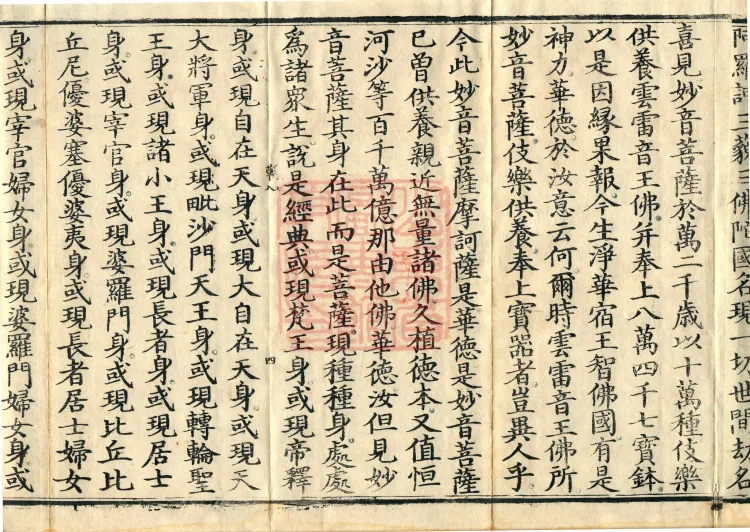 阿羅訶三藐三佛陀國名現一切世間劫名
喜見妙音菩薩於萬二千歲以十萬種伎樂
供養雲雷音王佛并奉上八萬四千七寶鉢
以是因緣果報今生淨華宿王智佛國有是
神力華德於汝意云何爾時雲雷音王佛所
妙音菩薩伎樂供養奉上寶器者豈異人乎
今此妙音菩薩摩訶薩是華德是妙音菩薩
已曾供養親近無量諸佛久植德本又值恒
河沙等百千萬億那由他佛華德汝但見妙
音菩薩其身在此而是菩薩現種種身處處
爲諸衆生說是經典或現梵王身或現帝釋
四
身或現自在天身或現大自在天身或現天
大將軍身或現毗沙門天王身或現轉輪聖
王身或現諸小王身或現長者身或現居士
身或現宰官身或現婆羅門身或現比丘比
丘尼優婆塞優婆夷身或現長者居士婦女
身或現宰官婦女身或現婆羅門婦女身或